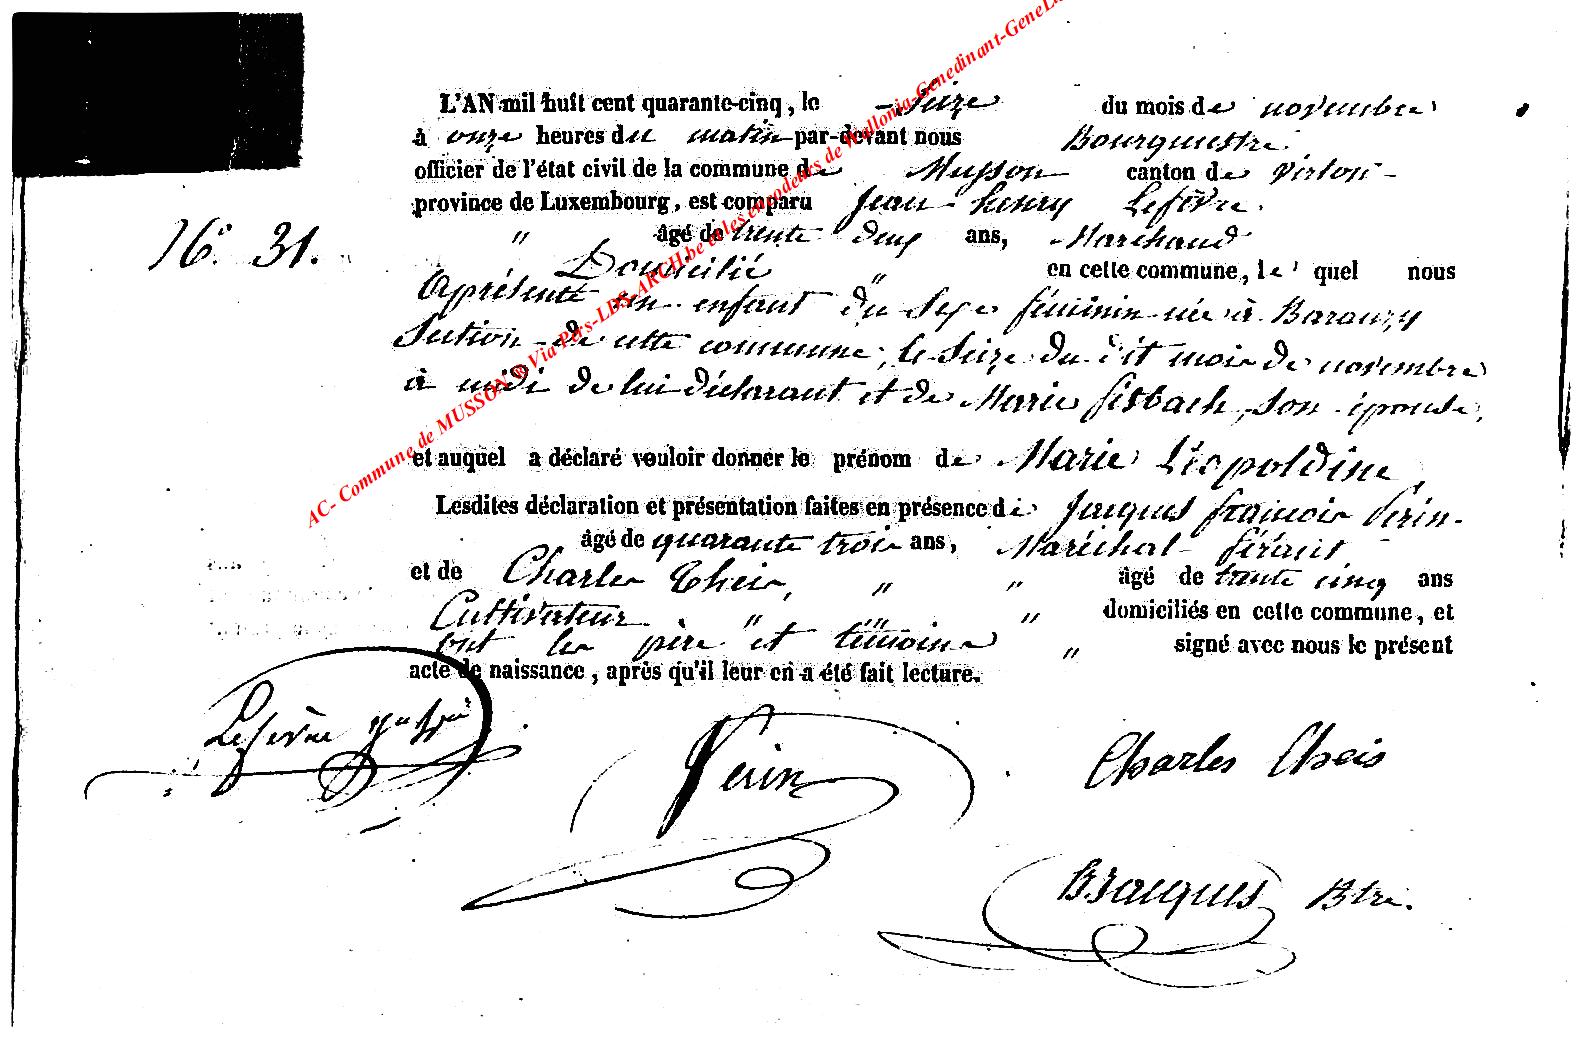 L'AN mil huit cent quarante-cinq, le seize du mois de novembre
à onze heures du matin par-devant nous Bourguestre
officier de l'état civil de la commune de Musson canton de Virton
province de Luxembourg, est comparu Jean henry Lefèvre.
N° 31.
" âgé de trente deux ans, Marchand
Domicilié " en cette commune, le quel nous
Aprésenté un enfant du sexe féminin née à Baranzy
Section de cette commune, le seize du dit mois de novembre
à midi de lui déclarant et de Marie fisbach, son épouse,
et auquel a déclaré vouloir donner le prénom de Marie Léopoldine,
Lesdites déclaration et présentation faites en présence de Jacques françois Perin
âgé de quarante trois ans, Maréchal férant
et de Charles Theis, " " âgé de trente cinq ans
Cultivateur " " " domiciliés en cette commune, et
ont les père et témoins " signé avec nous le présent
acte de naissance, après qu'il leur en a été fait lecture.
Lefèvre
Perin
Charles Theis
Btre.
AC- Commune de MUSSON @ Via Pers-LDS-ARCH.be et les encodeurs de Wallonia-Genedinant-GeneLu